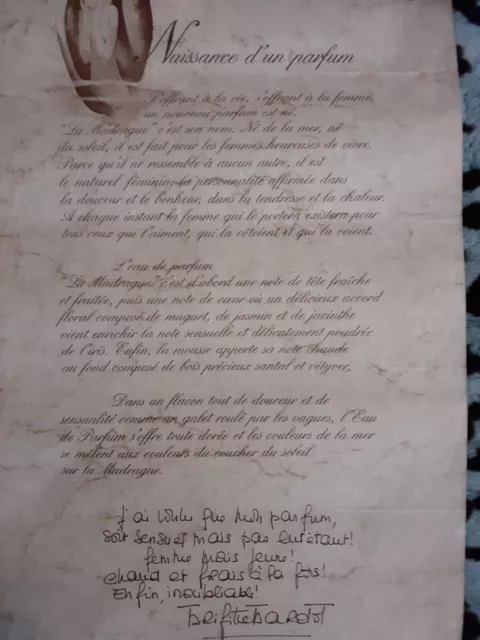 Naissance d'un parfum
S'offrant à la vie, s'offrant à la femme,
un nouveau parfum est né.
"La Madrague" c'est son nom. Né de la mer, né
du soleil, il est fait pour les femmes heureuses de vivre.
Parce qu'il ne ressemble à aucun autre, il est
le naturel féminin, la personnalité affirmée dans
la douceur et le bonheur, dans la tendresse et la chaleur.
A chaque instant la femme qui le portera existera pour
tous ceux qui l'aiment, qui la côtoient et qui la voient.
L'eau de parfum
"La Madrague" c'est d'abord une note de tête fraîche
et fruitée, puis une note de cœur où un délicieux accord
floral composé de muguet, de jasmin et de jacinthe
vient enrichir la note sensuelle et délicatement poudrée
de l'iris. Enfin, la mousse apporte sa note chaude
au fond composé de bois précieux santal et vétyver.
Dans un flacon tout de douceur et de
sensualité comme un galet roulé par les vagues, l'Eau
de Parfum s'offre toute dorée et les couleurs de la mer
se mêlent aux couleurs du coucher du soleil
sur la Madrague.
j'ai voulu que mon parfum,
soit sensuel mais pas entêtant!
femme mais jeune!
chaud et frais à la fois!
Enfin, inoubliable!
Brigitte Bardot